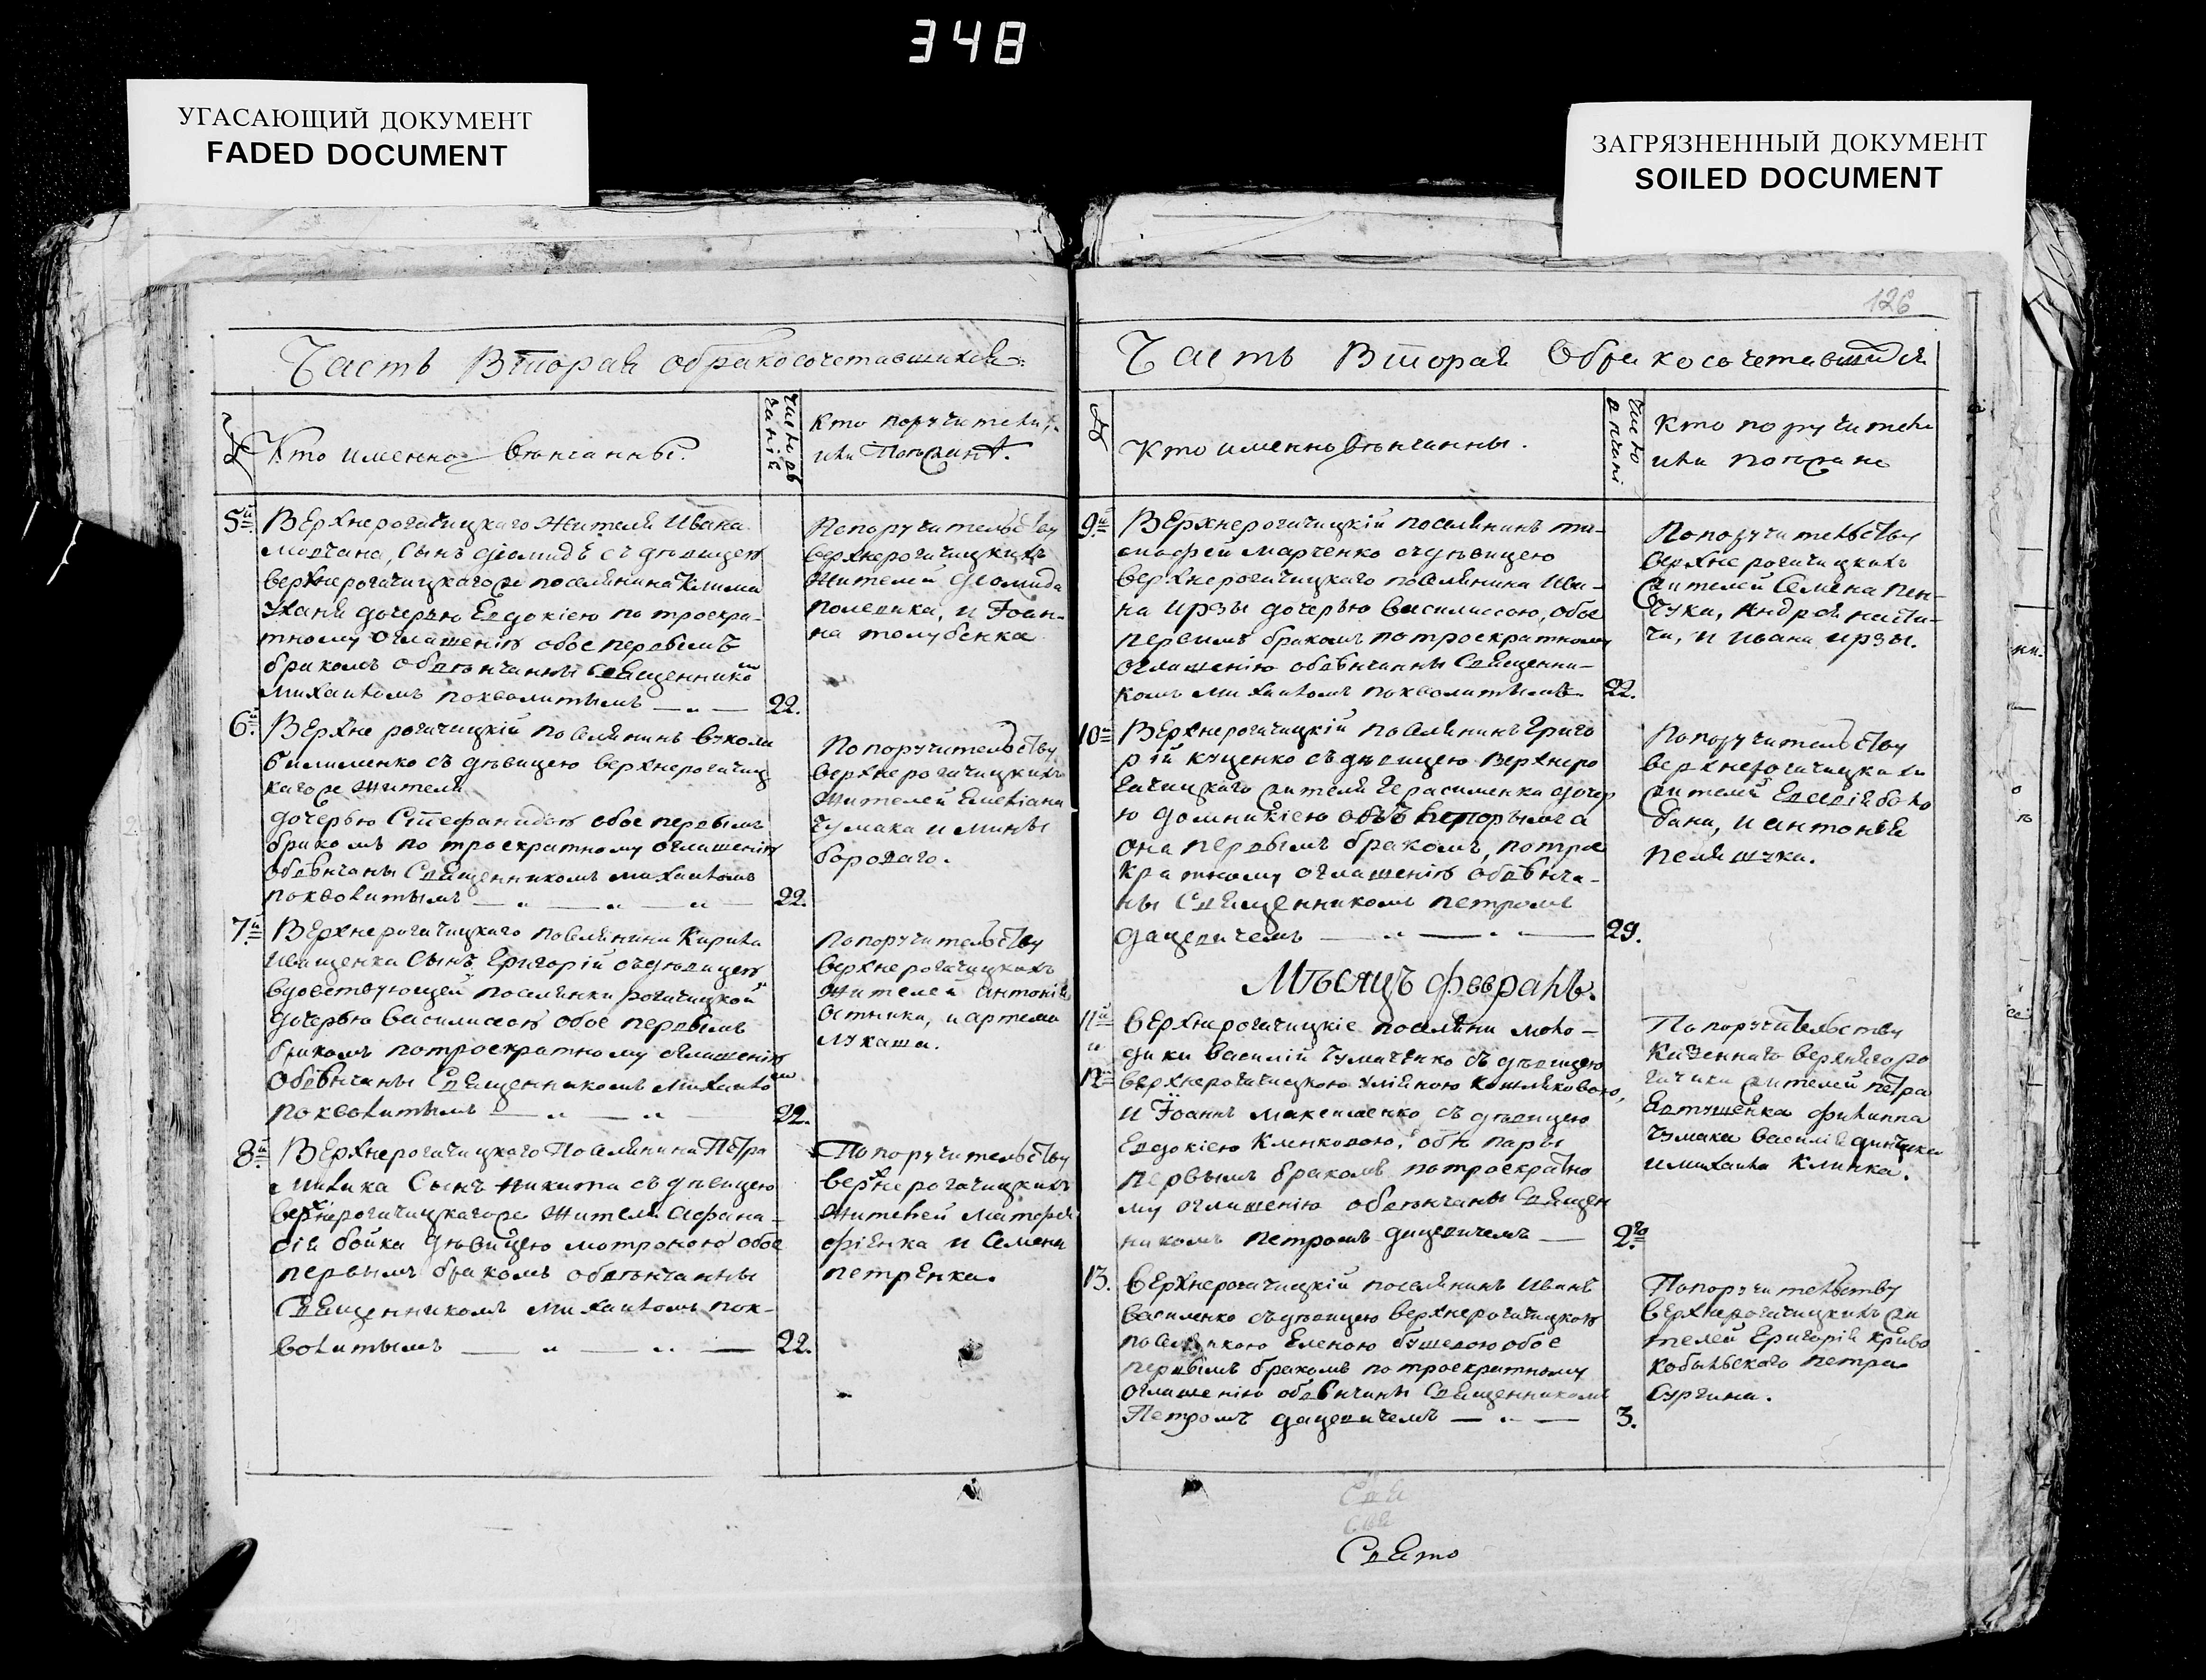 348
УГАСАЮЩИЙ ДОКУМЕНТ
FADED DOCUMENT
ЗАГРЯЗНЕННЫЙ ДОКУМЕНТ
SOILED DOCUMENT
126
Часть Вторая обракосочетавшихся
Кто именно вѣнчанны.
Кто поручители,
или
5й
Верхнерогачицкаго жителя Ивана
Сынъ Діомидъ съ дѣвицею
верхнерогачицкагоже поселянина Клима
дочерью Евдокіею по троекра-
тному оглашенію обое первымъ
бракомъ обвѣнчанны Священником
Михаиломъ похволитымъ 22.
По поручительству
верхнерогачицкихъ
жителей Діомида
и Іоан-
на толубенка
6й
Верхнерогачицкій поселянинъ вукола
съ дѣвицею верхнерогачиц
кагоже жителя
дочерью Стефанидою обое первымъ
бракомъ по троекратному оглашенію
обвѣнчаны Священникомъ михаиломъ
похволитымъ 22.
По поручительству
верхнерогачицкихъ
жителей Емеліана
чумака и мины
бородаго.
7й
Верхнерогачицкаго поселянина Кирила
иващенка Сынъ Григорій съ дѣвицею
вдовствующей поселянки рогачицкой
дочерью василисою обое первымъ
бракомъ по троекратному оглашенію
Обвѣнчаны Священникомъ Михаило
похволитымъ 22.
По поручительству
верхнерогачицкихъ
жителей антонія
и артема
лукаша.
8й
Верхнерогачицкаго Поселянина Петра
Сынъ никита съ дѣвицею
верхнерогачицкагоже жителя Афана-
сія бойка дѣвицею мотроною обое
первымъ бракомъ обвѣнчанны
Священникомъ михаиломъ пох-
волитымъ 22.
По поручительству
верхнерогачицкихъ
жителей
и Семена
петренка.
Часть Вторая Обракосочетавшихся
Кто именно вѣнчанны.
Кто поручители
или
9й
Верхнерогачицкій поселянинъ ти-
мофей Марченко съ дѣвицею
верхнерогачицкаго поселянина Ива-
на ирзы дочерью василиссою, обое
первымъ бракомъ по троекратному
оглашенію обвѣнчанны Священни-
комъ михаиломъ похволитымъ 22.
По поручительству
верхнерогачицкихъ
жителей Семена пен-
чука,
и ивана ирзы.
10й
Верхнерогачицкій поселянинъ Григо
рій куценко съ дѣвицею Верхнеро
гачицкаго жителя Герасименка дочер
ю домникіею онъ вторымъ а
она первымъ бракомъ, по трое
кратному оглашенію обвѣнча-
ны Священникомъ петромъ
дацевичемъ 29.
По поручительству
верхнерогачицкихъ
жителей боло
бана, и антонія
пелишука.
Мѣсяцъ февраль.
11й
и
12й
верхнерогачицкіе поселяни моло-
дики василій чумаченко съ дѣвицею
верхнерогачицкою уліяною кошляковою,
и Іоаннъ макешенко съ дѣвицею
Евдокіею Кленковою, обѣ пары
первымъ бракомъ по троекратно
му оглашенію обвѣнчаны Священ
никомъ петромъ дацевичемъ 2го
По поручительству
казеннаго верхняго ро
гачика жителей петра
Евтушенка филиппа
чумака василія
и михаила клинка.
13.
верхнерогачицкій поселянинъ иванъ
василенко съ дѣвицею верхнерогачицкою
поселянкою Еленою обое
первымъ бракомъ по троекратному
оглашенію обвѣнчаны Священникомъ
Петромъ дацевичемъ 3.
По поручительству
верхнерогачицкихъ жи
телей Григорія криво
кобыльскаго петра
сургина.